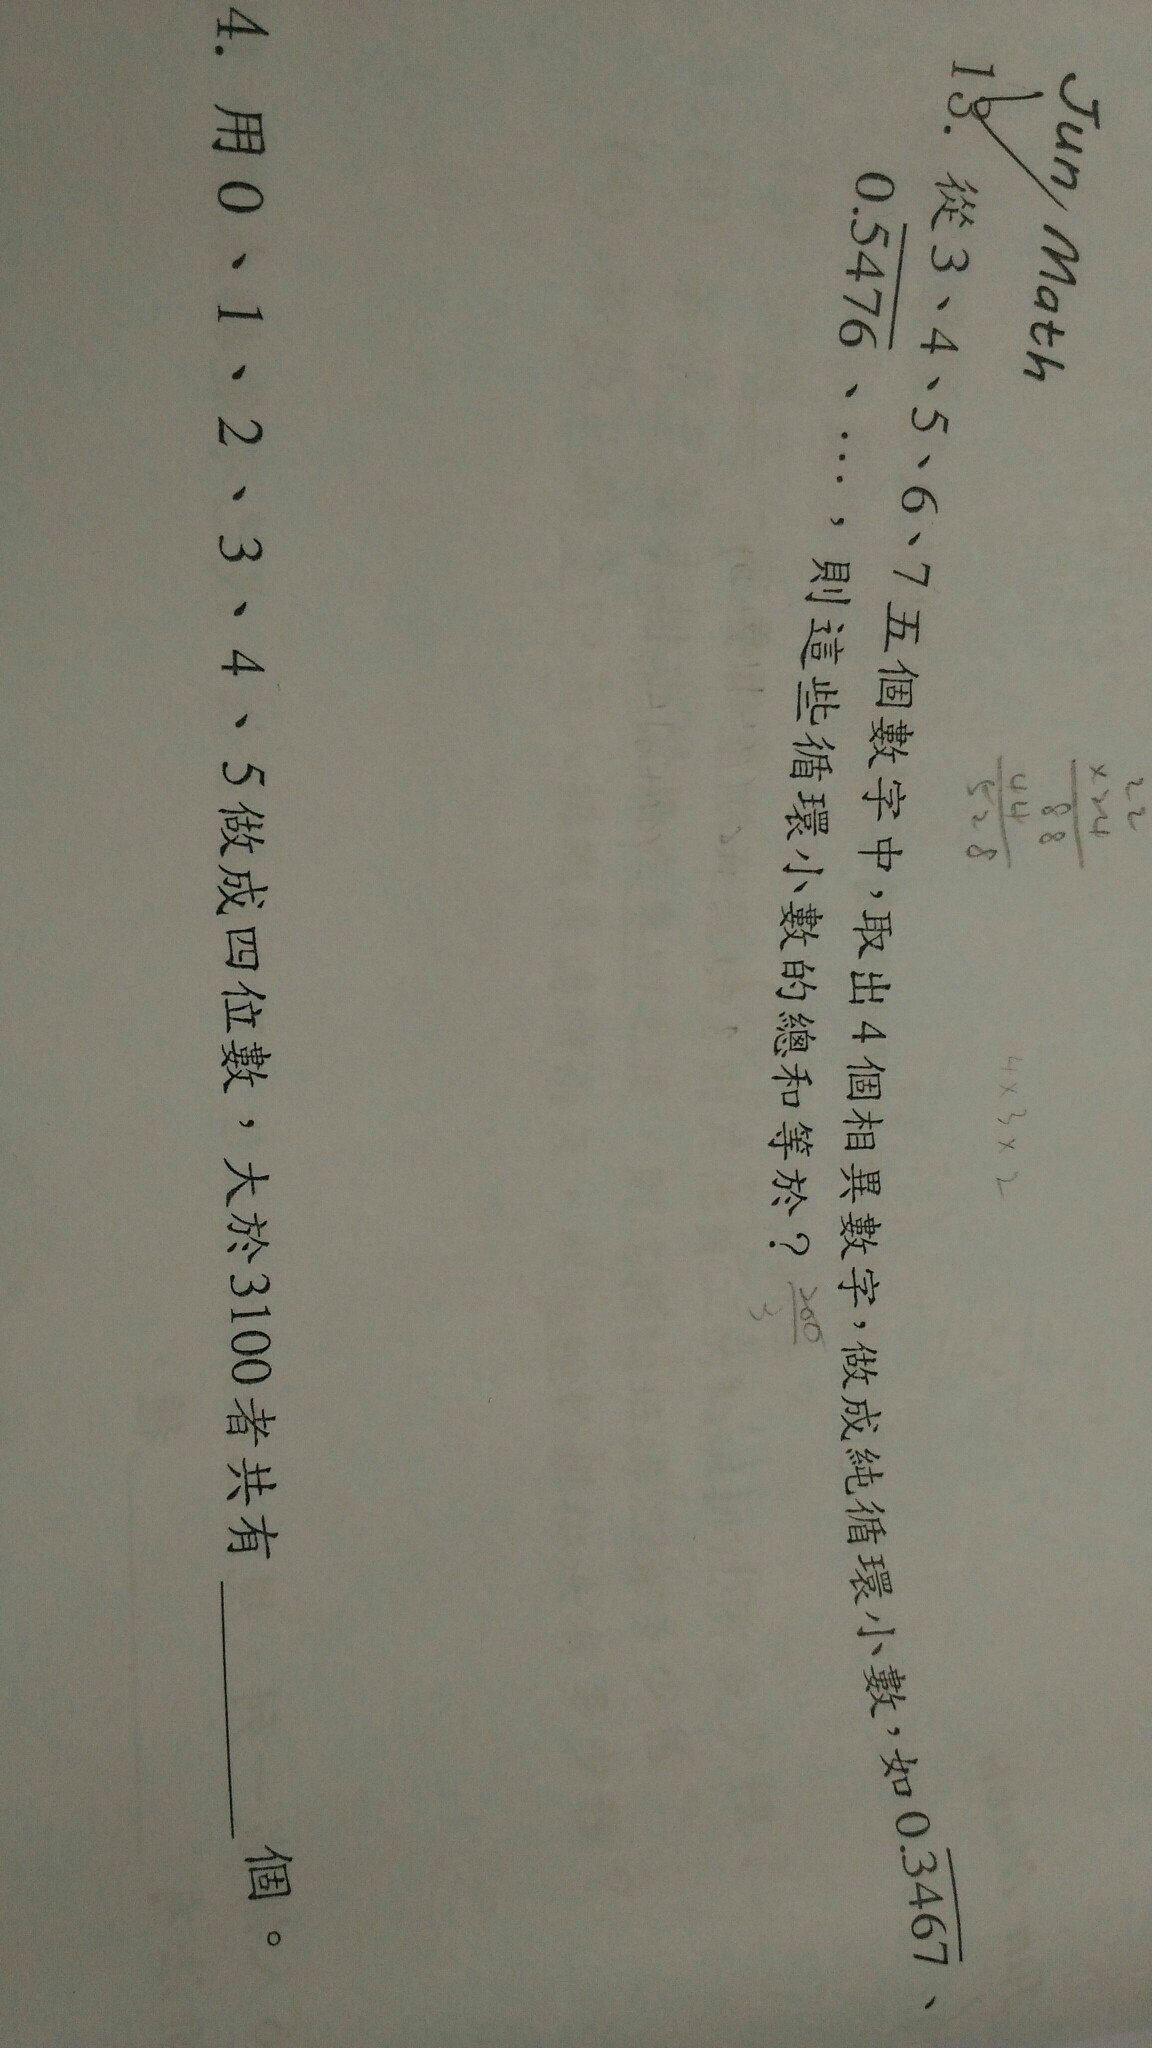 Jun Math
13. 從3、4、5、6、7五個數字中,取出4個相異數字,做成純循環小數,如0.3467、
0.5476、…,則這些循環小數的總和等於?
200
3
22
×24
88
44
528
4×3×2
4. 用0、1、2、3、4、5做成四位數,大於3100者共有________個。